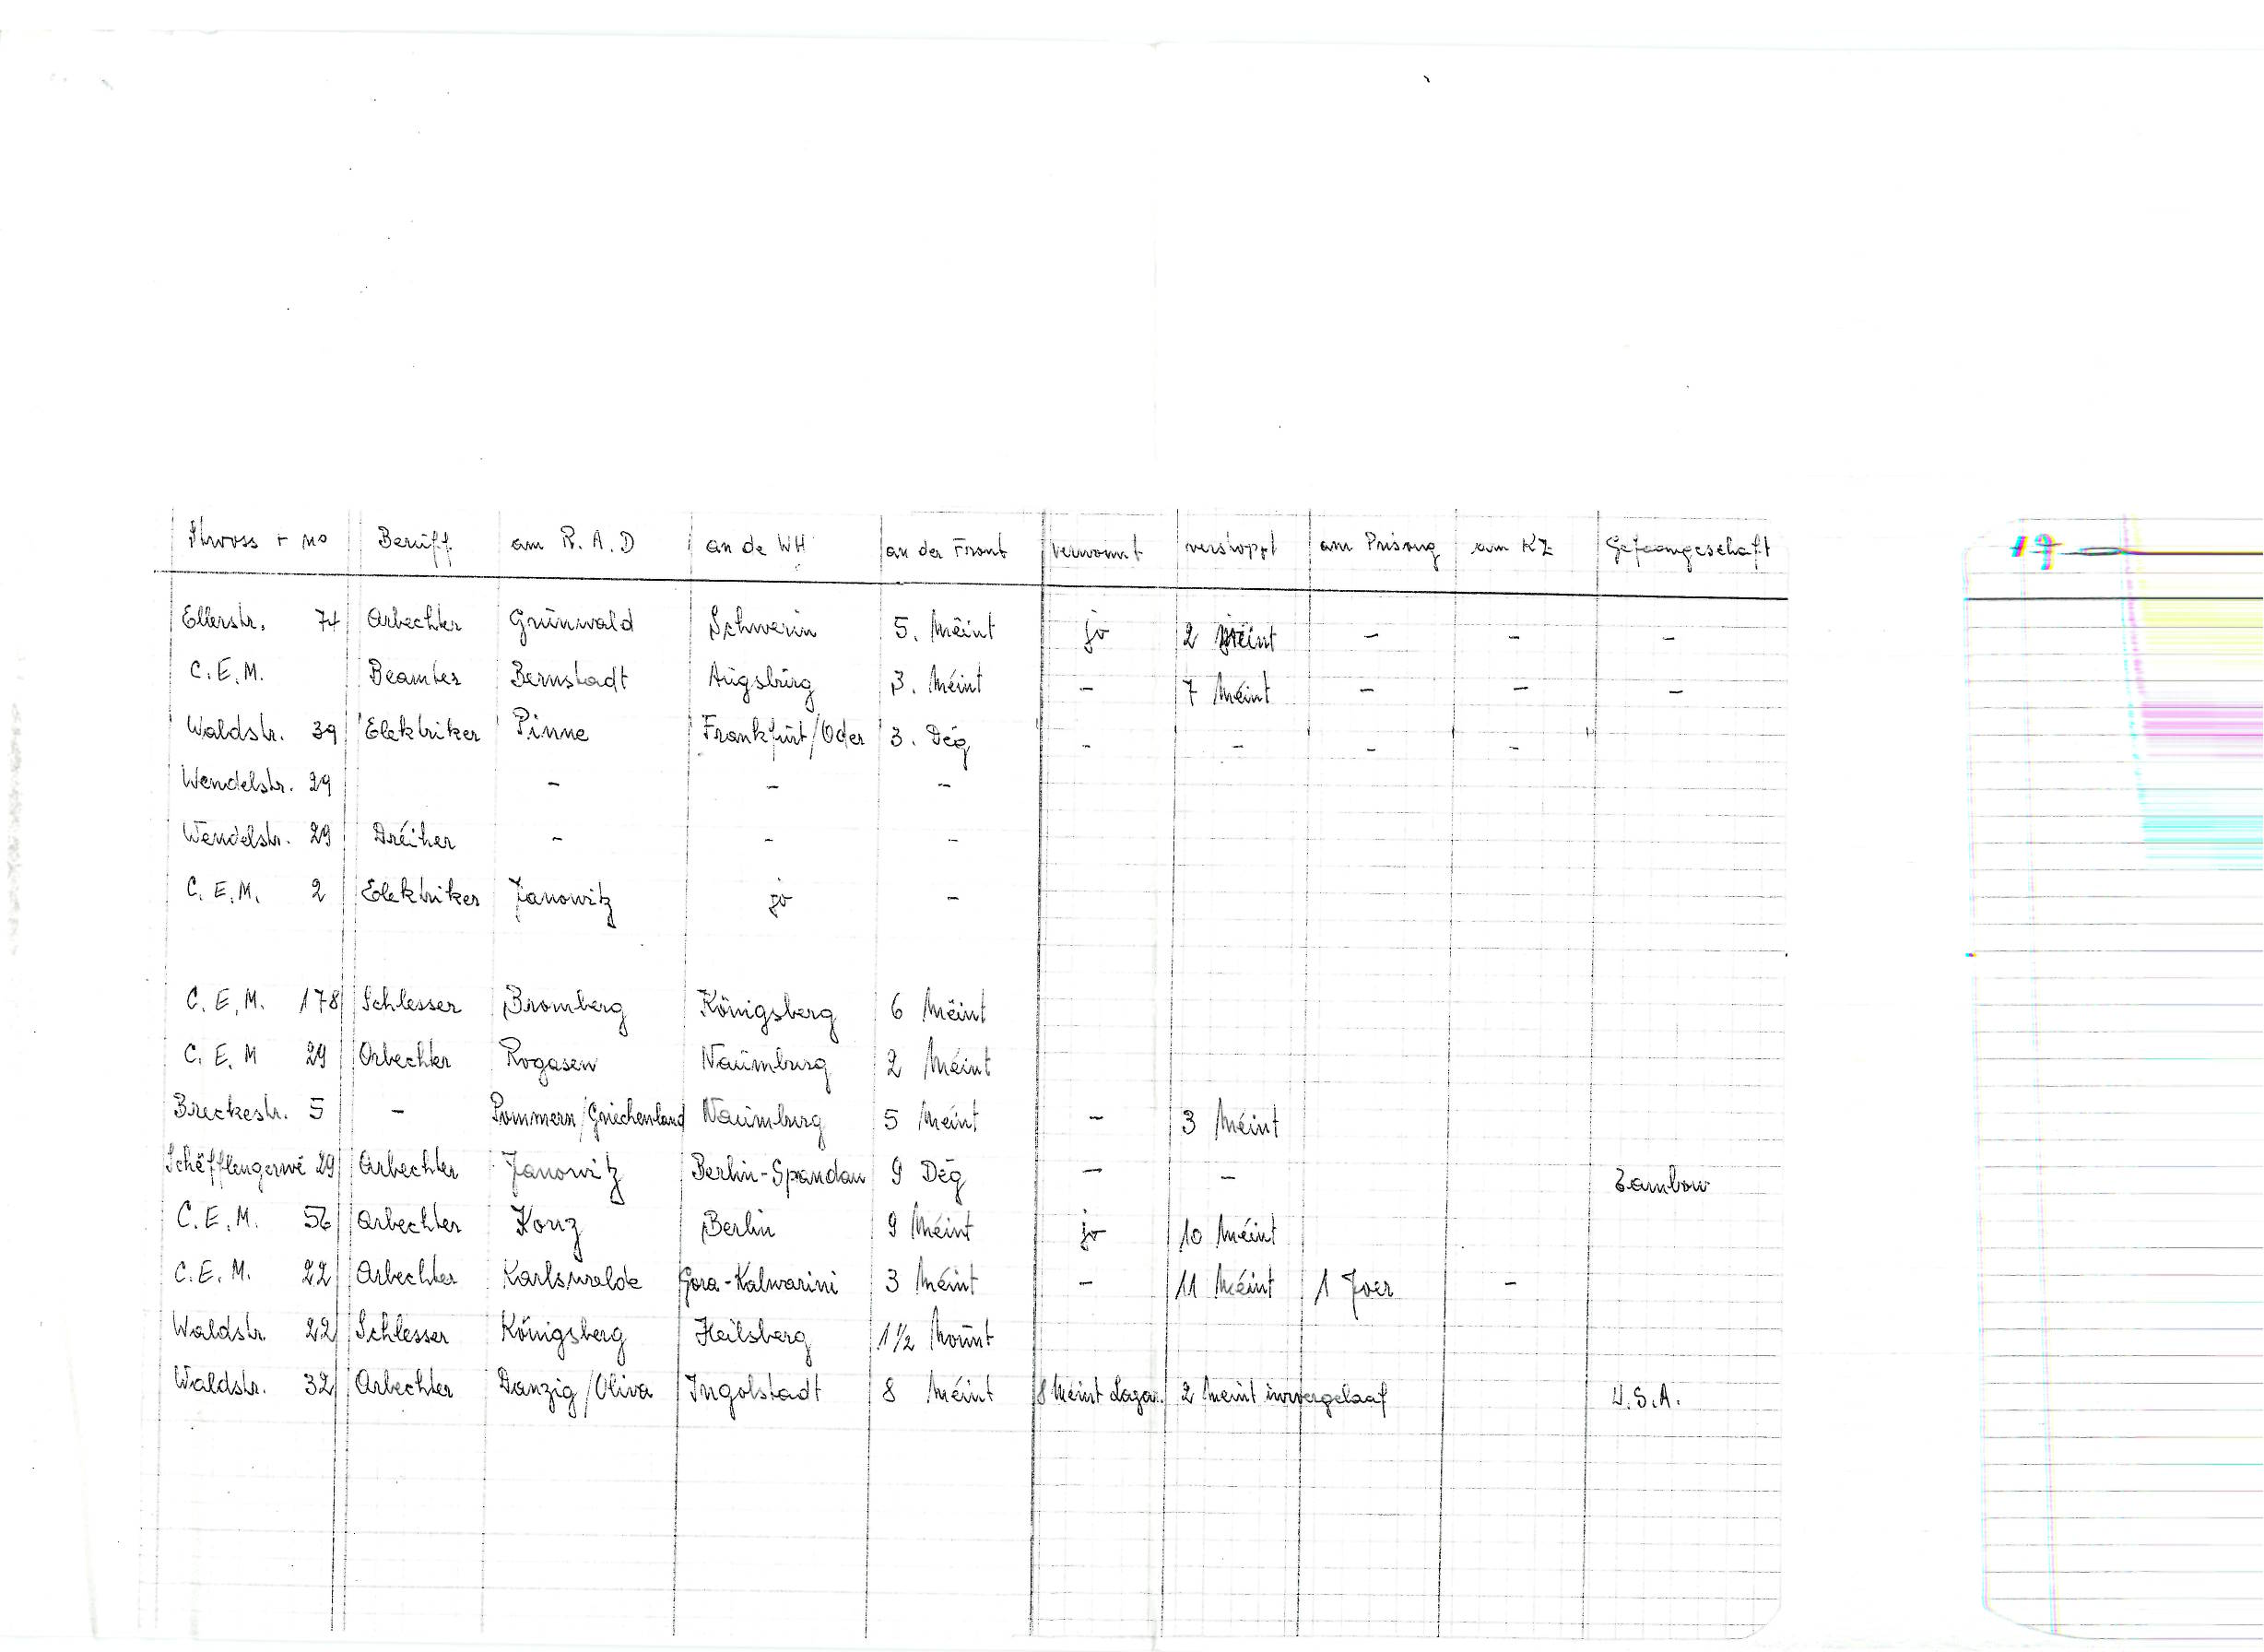 Strooss + no Beruff am R.A.D an de WH an der Front verwonnt verstoppt am Prisong am KZ Gefaangeschaft
19
Ellerstr. 74 Arbechter Grünwald Schwerin 5. Méint jo 2 Méint - - -
C.E.M. Beamter Bernstadt Augsburg 3. Méint - 7 Méint - - -
Waldstr. 39 Elektriker Pinne Frankfurt/Oder 3. Deg - - - -
Wendelstr. 29 - - -
Wendelstr. 29 Dréiher - - -
C.E.M. 2 Elektriker Janowitz jo -
C.E.M. 178 Schlesser Bromberg Königsberg 6 Méint
C.E.M 29 Arbechter Rogasen Naumburg 2 Méint
Breckestr. 5 - Pommern/Griechenland Naumburg 5 Méint - 3 Méint
Schëfflengerwé 29 Arbechter Janowitz Berlin-Spandau 9 Deg - - Tambow
C.E.M. 56 Arbechter Konz Berlin 9 Méint jo 10 Méint
C.E.M. 22 Arbechter Karlswalde Gora-Kalwarini 3 Méint - 11 Méint 1 Joer -
Waldstr. 22 Schlesser Königsberg Heilsberg 1 1/2 Mount
Waldstr. 32 Arbechter Danzig/Oliva Ingolstadt 8 Méint 8 Méint Lazar. 2 Méint iwwergelaaf U.S.A.